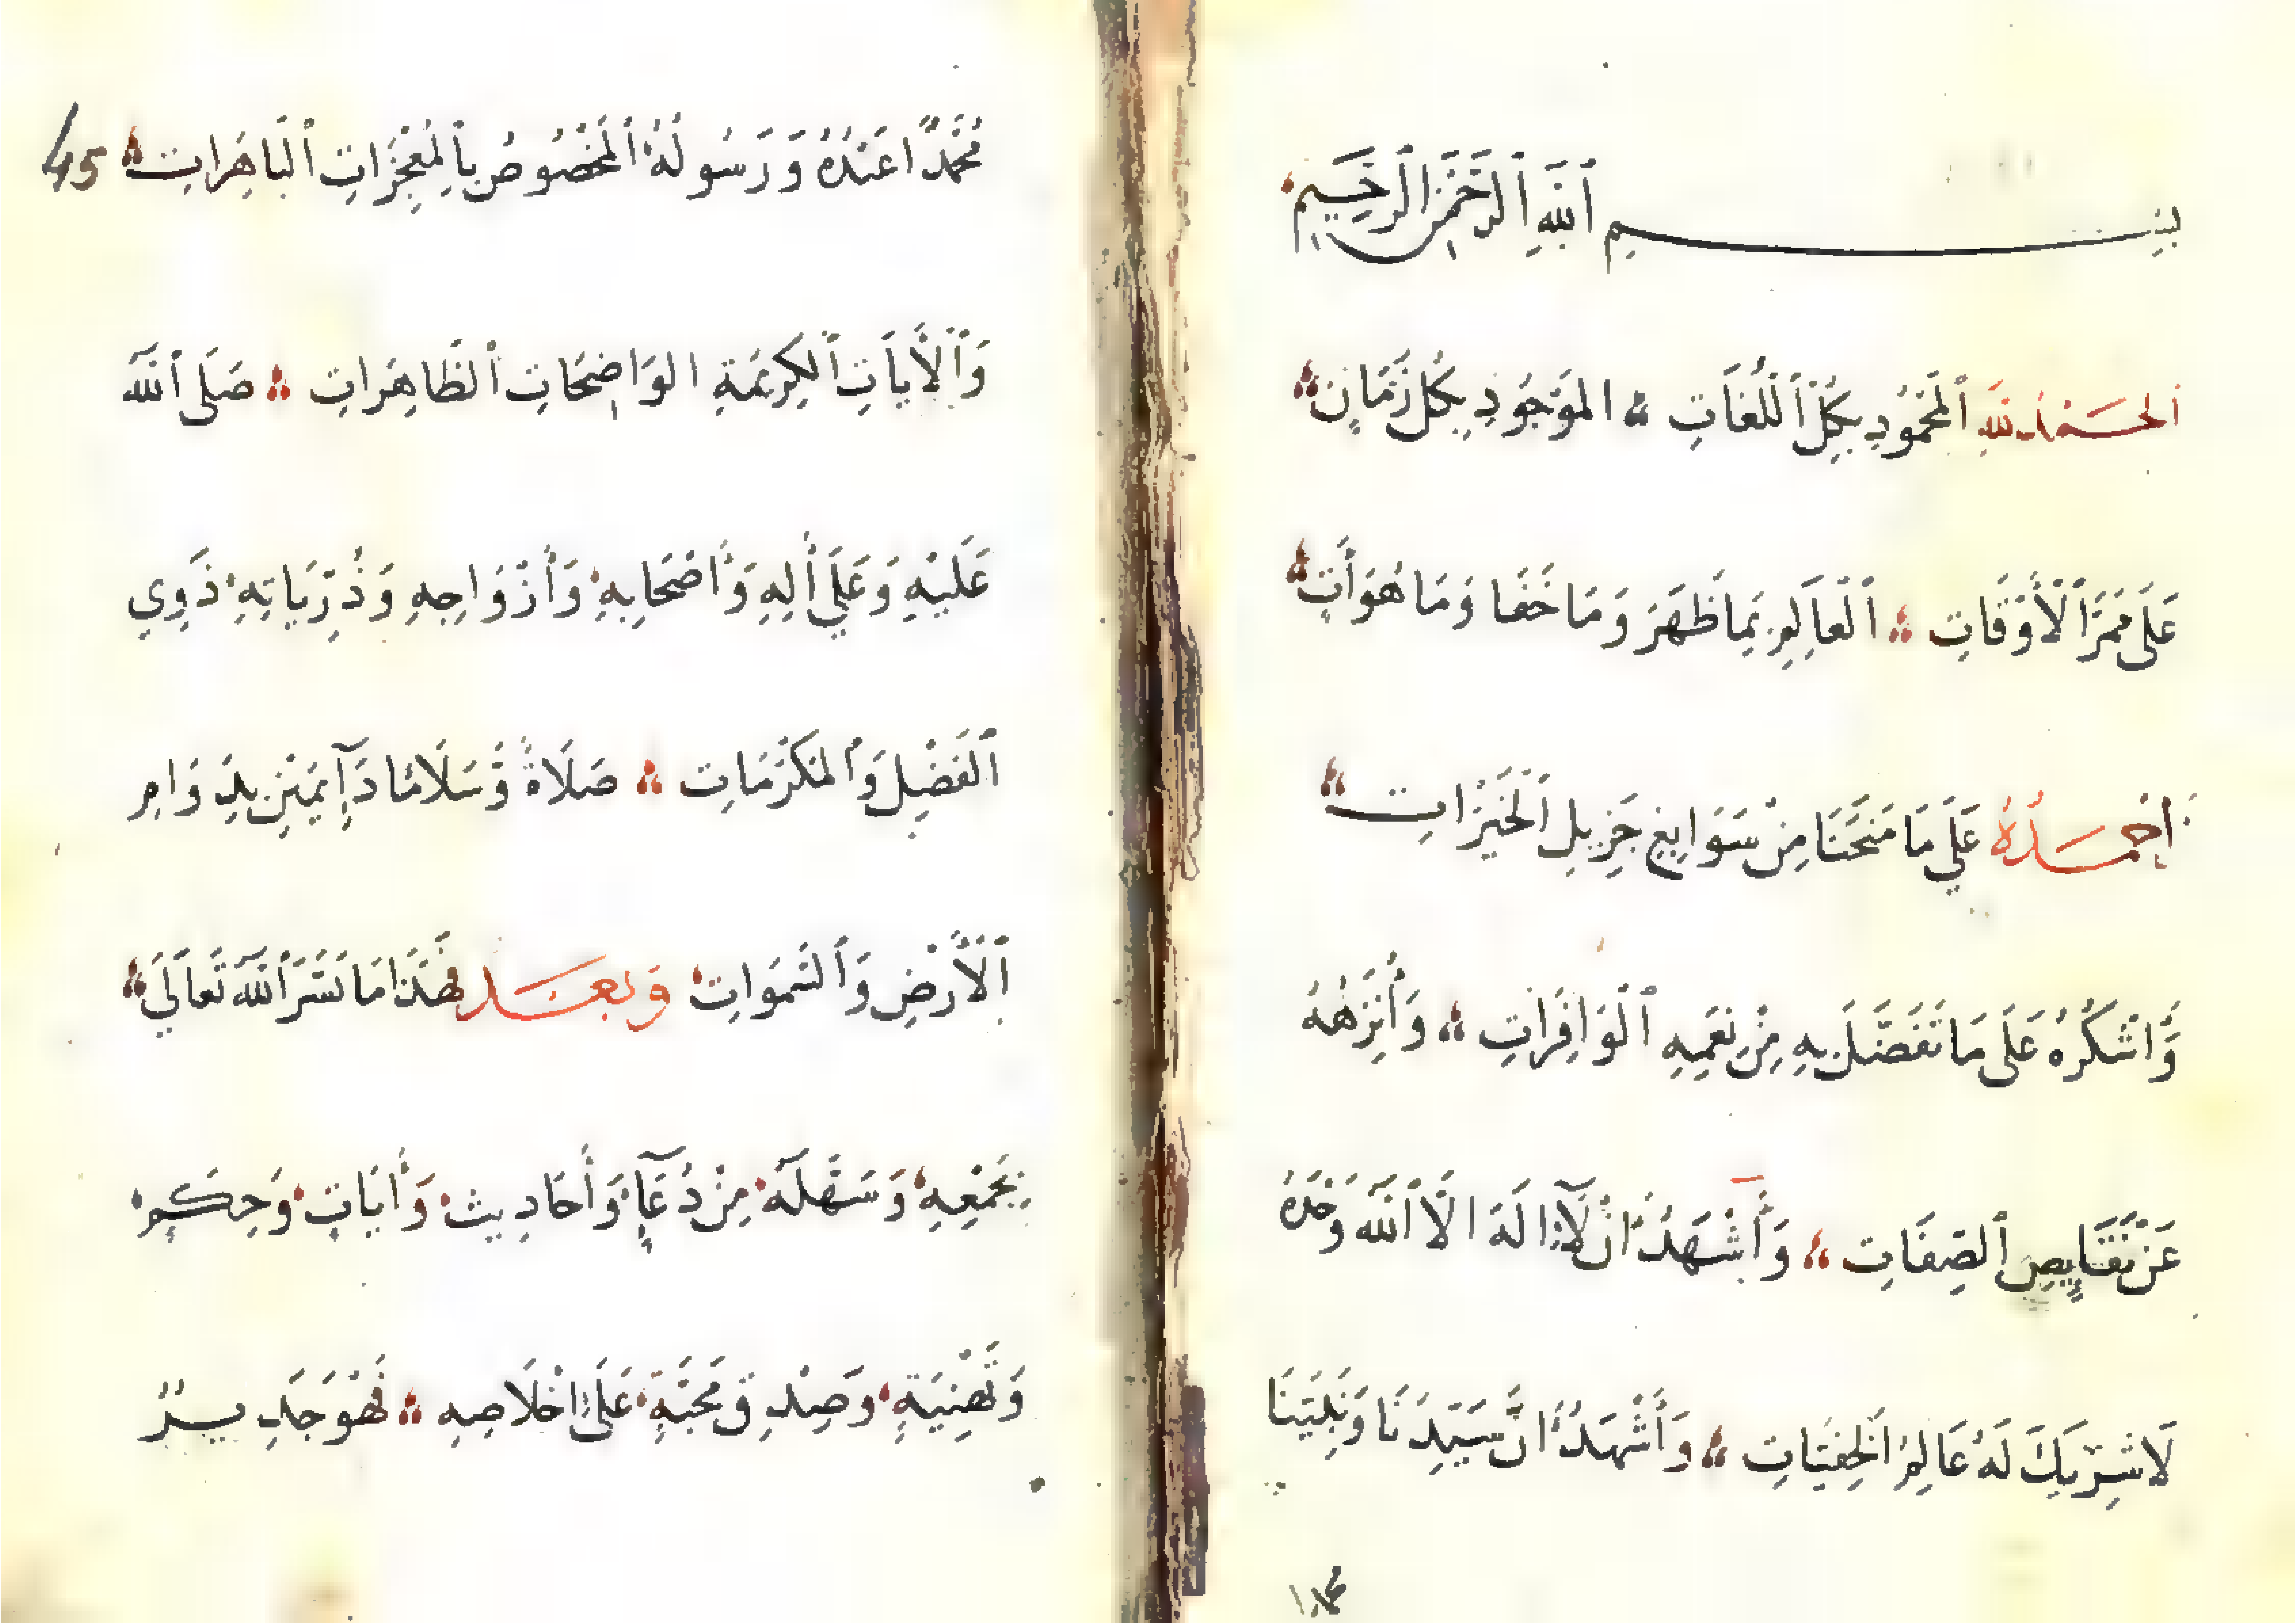 بِسْمِ ٱللَّهِ ٱلرَّحْمَٰنِ ٱلرَّحِيمِ
ٱلحَمْدُ لِلَّهِ ٱلْمَحْمُودِ بِكُلِّ ٱللُّغَاتِ ؞ الْمَوْجُودِ بِكُلِّ زَمَانٍ ؞
عَلَى مَمَرِّ ٱلْأَوْقَاتِ ؞ ٱلْعَالِمِ بِمَا ظَهَرَ وَمَا خَفَا وَمَا هُوَ أَتٍ ؞
أَحْمَدُهُ عَلَي مَا مَنَحَنَا مِنْ سَوَابِغِ جَزِيلِ ٱلْخَيْرَاتِ ؞
وَأَشْكُرُهُ عَلَى مَا تَفَضَّلَ بِهِ مِنْ نِعَمِهِ ٱلْوَافِرَاتِ ؞ وَأُنَزِّهُهُ
عَنْ نَقَايِصِ ٱلصِّفَاتِ ؞ وَأَشْهَدُ أَنْ لَآ إِلَهَ الَّا ٱللَّهَ وَحْدَهُ
لَا شَرِيكَ لَهُ عَالِمُ ٱلْخَفِيَّاتِ ؞ وَأَشْهَدُ أَنَّ سَيِّدَنَا وَنَبِيَّنَا
محمدا
45
مُحَمَّدًا عَبْدُهُ وَرَسُولُهُ ٱلْمَخْصُوصُ بِٱلْمُعْجِزَاتِ ٱلْبَاهِرَاتِ ؞
وَٱلْأَيَاتِ ٱلْكَرِيمَةِ الوَاضِحَاتِ ٱلظَّاهِرَاتِ ؞ صَلَى ٱللَّه
عَلَيْهِ وَعَلَي أَلِهِ وَأَصْحَابِهِ وَأَزْوَاجِهِ وَذُرِّيَاتِهِ ذَوِي
ٱلْفَضْلِ وَٱلْمَكْرُمَاتِ ؞ صَلَاةً وَسَلَامًا دَآئِمَيْنِ بِدَوَامِ
ٱلْأَرْضِ وَٱلسَّمَوَاتِ وَبَعْد فَهَذَا مَا يَسَّرَ ٱللَّهَ تَعَالَي ؞
بِجَمْعِهِ وَسَهَّلَهُ مِنْ دُعَآءٍ وَأَحَادِيث وَأَيَاتٍ وَحِكَمٍ
وَتَهْنِيَةٍ وَصِدْقِ مَحَبَّةٍ عَلَى إِخْلَاصِهِ ؞ فَهُوَ جَدِيرُ